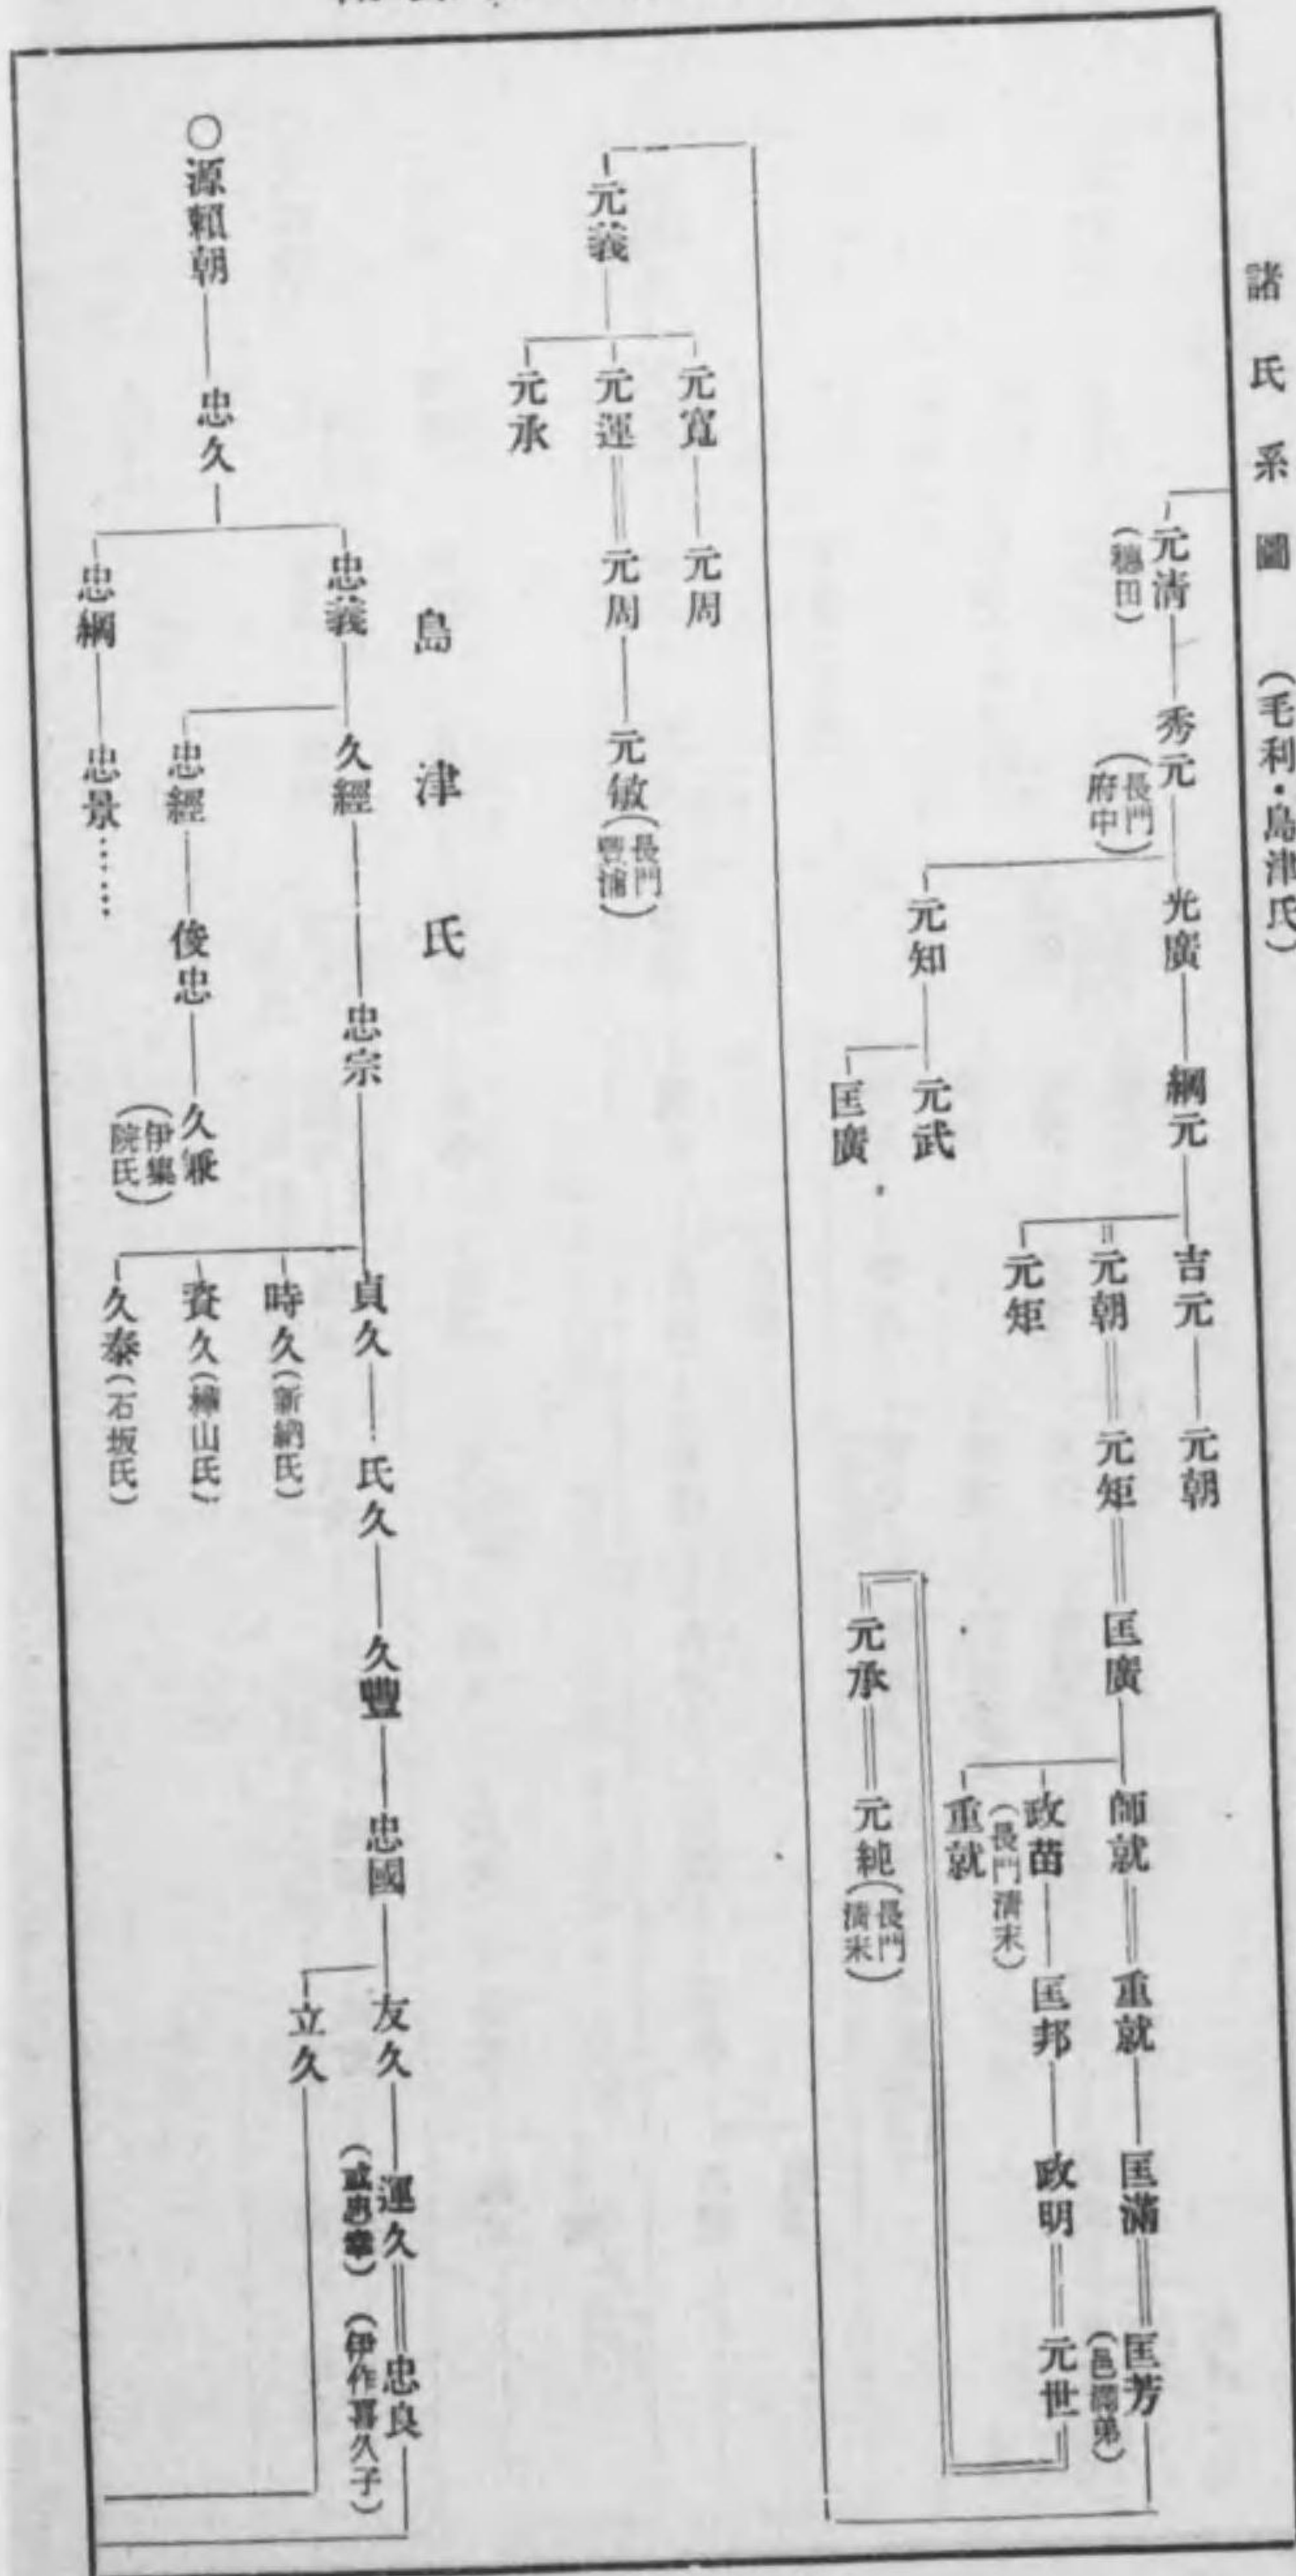 諸氏系圖　（毛利・島津氏）
元清（穗田）―秀元（長門府中）―光廣―綱元―吉元―元朝
元朝＝元矩＝匡廣―師就＝重就―匡滿＝匡芳
元矩
政苗（長門清末）―匡邦―政明＝元世
重就
元知―元武
匡廣
元承＝元純（長門清末）
元義―元寬―元周
元運＝元周―元敏（長門豐浦）
元承
島津氏
○源賴朝―忠久―忠義―久經―忠宗―貞久―氏久―久豐―忠國―友久―運久＝忠良（伊作善久子）
立久
時久（新納氏）
資久（樺山氏）
久泰（石坂氏）
忠經―俊忠―久兼（伊集院氏）
忠綱―忠景……